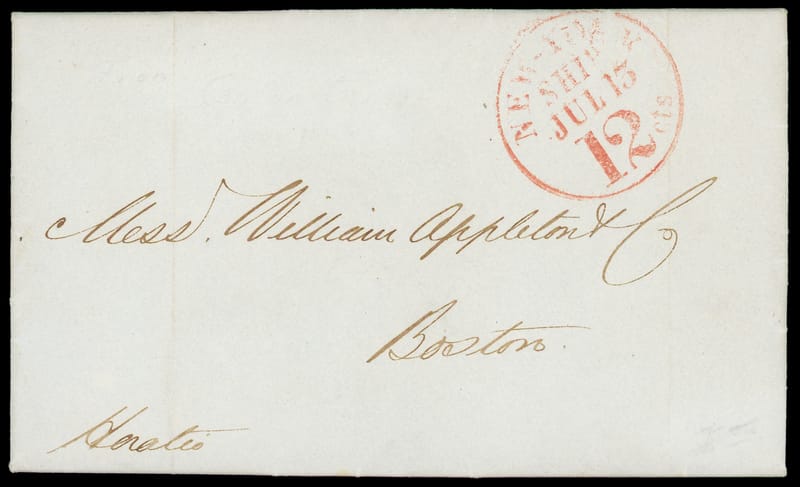 NEW-YORK
SHIP
JUL 13
12 cts
Mess.rs William Appleton & Co
Boston.
Horatio